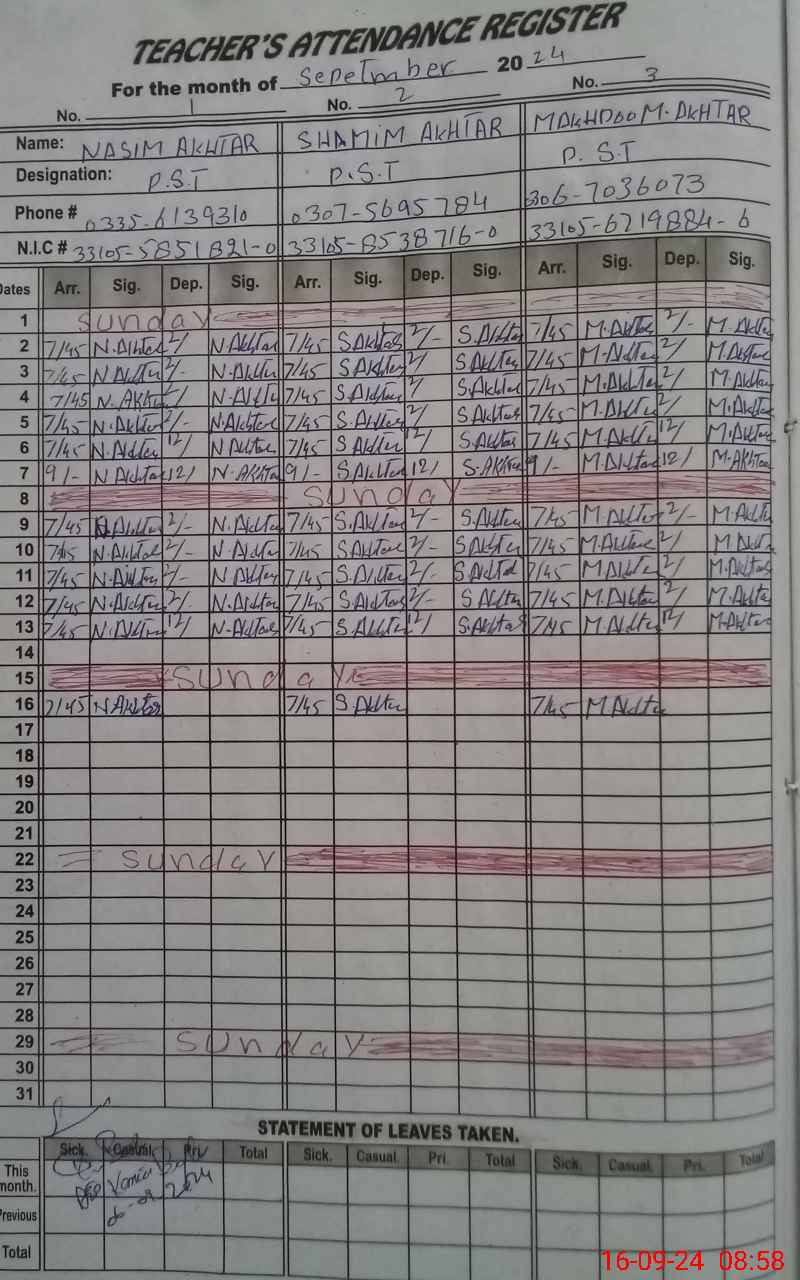 TEACHER'S ATTENDANCE REGISTER
For the month of Sepetmber 2024
No. 1 No. 2 No. 3
Name: NASIM AKHTAR SHAMIM AKHTAR MAKHDOOM.AKHTAR
Designation: P.S.T P.S.T P.S.T
Phone # 0335-6139310 0307-5695784 306-7036073
N.I.C # 33105-5851821-0 33105-8538716-0 33105-6719884-6
Dates Arr. Sig. Dep. Sig. Arr. Sig. Dep. Sig. Arr. Sig. Dep. Sig.
1 Sunday
2 7/45 N.Akhtar 2/ N.Akhtar 7/45 S.Akhtar 2/- S.Akhtar 7/45 M.Akhtar 2/- M.Akhtar
3 7/45 N.Akhtar 2/- N.Akhtar 7/45 S.Akhtar 2/ S.Akhtar 7/45 M.Akhtar 2/ M.Akhtar
4 7/45 N.Akhtar 2/ N.Akhtar 7/45 S.Akhtar 2/ S.Akhtar 7/45 M.Akhtar 2/ M.Akhtar
5 7/45 N.Akhtar 2/- N.Akhtar 7/45 S.Akhtar 2/ S.Akhtar 7/45 M.Akhtar 2/ M.Akhtar
6 7/45 N.Akhtar 12/ N.Akhtar 7/45 S.Akhtar 12/ S.Akhtar 7/45 M.Akhtar 12/ M.Akhtar
7 9/- N.Akhtar 12/ N.Akhtar 9/- S.Akhtar 12/ S.Akhtar 9/- M.Akhtar 12/ M.Akhtar
8 Sunday
9 7/45 N.Akhtar 2/- N.Akhtar 7/45 S.Akhtar 2/- S.Akhtar 7/45 M.Akhtar 2/- M.Akhtar
10 7/45 N.Akhtar 2/- N.Akhtar 7/45 S.Akhtar 2/- S.Akhtar 7/45 M.Akhtar 2/- M.Akhtar
11 7/45 N.Akhtar 2/- N.Akhtar 7/45 S.Akhtar 2/- S.Akhtar 7/45 M.Akhtar 2/ M.Akhtar
12 7/45 N.Akhtar 2/- N.Akhtar 7/45 S.Akhtar 2/- S.Akhtar 7/45 M.Akhtar 2/ M.Akhtar
13 7/45 N.Akhtar 12/ N.Akhtar 7/45 S.Akhtar 12/ S.Akhtar 7/45 M.Akhtar 12/ M.Akhtar
14
15 Sunday
16 7/45 N.Akhtar 7/45 S.Akhtar 7/45 M.Akhtar
17
18
19
20
21
22 Sunday
23
24
25
26
27
28
29 Sunday
30
31
STATEMENT OF LEAVES TAKEN.
Sick. Casual. Pri. Total Sick. Casual. Pri. Total Sick. Casual. Pri. Total
This
month.
Previous
Total
16-09-24 08:58